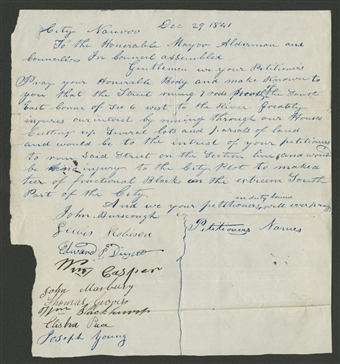 City Nauvoo Dec 29 1841
To the Honorable Mayor Alderman and
Councillors In Council assembled
Gentlemen we your Petitioners
Pray your Honorable Body and make known to
you that the Street runing 7 rods North the South
East Corner of Sec 6 west to the River Greatly
injures our interest by runing through our Houses
Cutting up Several lots and parsels of land
and would be to the intrest of your petitioners
to run Said Street on the Section line and would
be no injury to the City Plot to make a
teer of fractional Block in the extreem South
Part of the City
in duty bound
And we your petitioners will ever pray
John Burscough
Petitioners Names
Lewis Robison
Edward P. Duzett
Wm Casper
John Marbury
Thomas
Wm Blackhurst
Elisha
Joseph Young